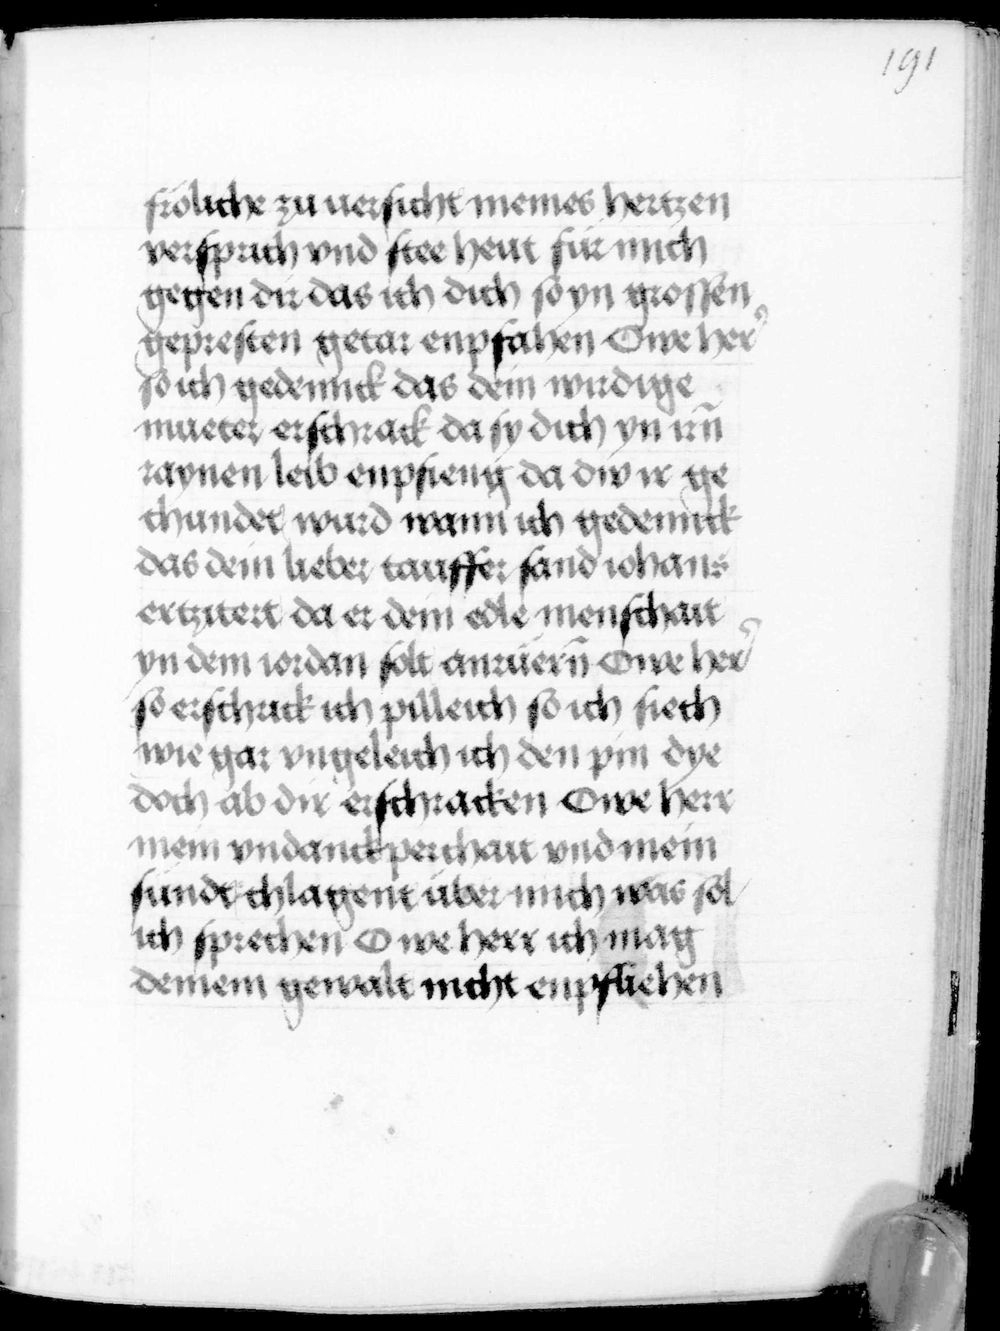 191
fröliche zu uersicht meines hertzen
versprich vnd stee heut für mich
gegen dir das ich dich so yn grossen
gepresten getar enpfahen Owe her
so ich gedennck das dein wirdige
mueter erschrack da sy dich yn irn̄
raynen leib enpfieng da diw ir ge
chundet ward wann ich gedennck
das dein lieber tauffer sand iohans
ertzitert da er dein edle menschait
yn dem iordan solt anrüern̄ Owe her
so erschrick ich pilleich so ich siech
wie gar vngeleich ich den pin dye
doch ab dir erschracken Owe herr
mein vndanckperchait vnd mein
sündt chlagent über mich was sol
ich sprechen Owe herr ich mag
deinem gewalt nicht enpfliehen